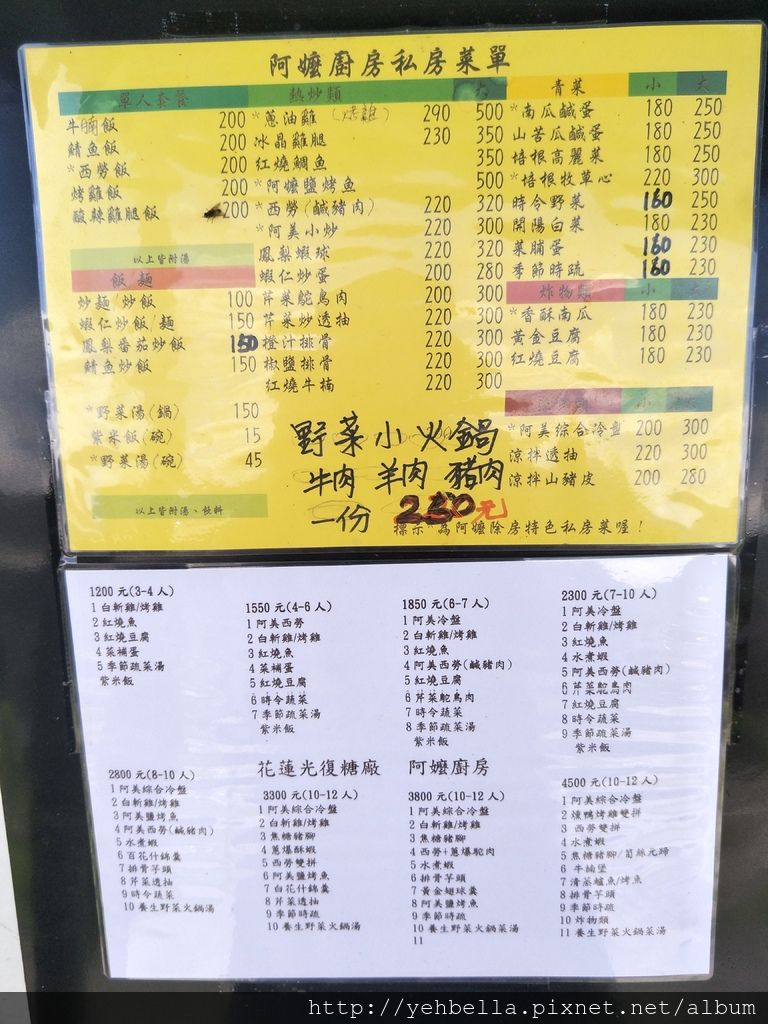 阿嬤廚房私房菜單
單人套餐
牛腩飯 200
鯖魚飯 200
*西勞飯 200
烤雞飯 200
酸辣雞腿飯 200
以上皆附湯
飯 麵
炒麵/炒飯 100
蝦仁炒飯/麵 150
鳳梨番茄炒飯 150
鯖魚炒飯 150
*野菜湯(鍋) 150
紫米飯(碗) 15
*野菜湯(碗) 45
以上皆附湯、飲料
熱炒類 大
*蔥油雞 (烤雞) 290 500
冰晶雞腿 230 350
紅燒鯛魚 350
*阿嬤鹽烤魚 500
*西勞(鹹豬肉) 220 320
*阿美小炒 220 300
鳳梨蝦球 220 320
蝦仁炒蛋 200 280
芹菜鴕鳥肉 200 300
芹菜炒透抽 220 300
橙汁排骨 220 300
椒鹽排骨 220 300
紅燒牛楠 220 300
青菜 小 大
*南瓜鹹蛋 180 250
山苦瓜鹹蛋 180 250
培根高麗菜 180 250
*培根牧草心 220 300
時令野菜 180 250
開陽白菜 180 230
菜脯蛋 180 230
季節時疏 180 230
炸物類 小 大
*香酥南瓜 180 230
黃金豆腐 180 230
紅燒豆腐 180 230
小
*阿美綜合冷盤 200 300
涼拌透抽 220 300
涼拌山豬皮 200 280
野菜小火鍋
牛肉 羊肉 豬肉
一份 250元
標示*為阿嬤除房特色私房菜喔！
1200 元(3-4 人)
1 白斬雞/烤雞
2 紅燒魚
3 紅燒豆腐
4 菜補蛋
5 季節疏菜湯
紫米飯
1550 元(4-6 人)
1 阿美西勞
2 白斬雞/烤雞
3 紅燒魚
4 菜補蛋
5 紅燒豆腐
6 時令蔬菜
7 季節疏菜湯
紫米飯
1850 元(6-7 人)
1 阿美冷盤
2 白斬雞/烤雞
3 紅燒魚
4 阿美西勞(鹹豬肉)
5 紅燒豆腐
6 芹菜鴕鳥肉
7 時令蔬菜
8 季節疏菜湯
紫米飯
2300 元(7-10 人)
1 阿美冷盤
2 白斬雞/烤雞
3 紅燒魚
4 水煮蝦
5 阿美西勞(鹹豬肉)
6 芹菜鴕鳥肉
7 紅燒豆腐
8 時令蔬菜
9 季節疏菜湯
紫米飯
花蓮光復糖廠 阿嬤廚房
2800 元(8-10 人)
1 阿美綜合冷盤
2 白斬雞/烤雞
3 阿美鹽烤魚
4 阿美西勞(鹹豬肉)
5 水煮蝦
6 百花什錦羹
7 排骨芋頭
8 芹菜透抽
9 時令蔬菜
10 養生野菜火鍋湯
3300 元(10-12 人)
1 阿美綜合冷盤
2 白斬雞/烤雞
3 焦糖豬腳
4 蔥爆酥蝦
5 西勞雙拼
6 阿美鹽烤魚
7 白花什錦羹
8 芹菜透抽
9 季節時疏
10 養生野菜火鍋湯
3800 元(10-12 人)
1 阿美綜合冷盤
2 白斬雞/烤雞
3 焦糖豬腳
4 西勞+蔥爆駝肉
5 水煮蝦
6 排骨芋頭
7 黃金翅球羹
8 阿美鹽烤魚
9 季節時疏
10 養生野菜火鍋菜湯
11
4500 元(10-12 人)
1 阿美綜合冷盤
2 燻鴨烤雞雙拼
3 西勞雙拼
4 水煮蝦
5 焦糖豬腳/筍絲元蹄
6 牛腩堡
7 清蒸鱸魚/烤魚
8 排骨芋頭
9 季節時疏
10 炸物類
11 養生野菜火鍋菜湯
http://yehbella.pixnet.net/album